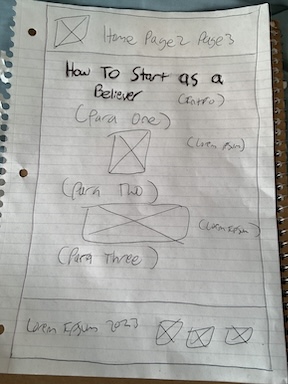 Home Page2 Page3
How To Start as a
Believer
(Intro)
(Para One)
(Lorem Ipsum)
(Para Two)
(Lorem Ipsum)
(Para Three)
Lorem Ipsum 2023